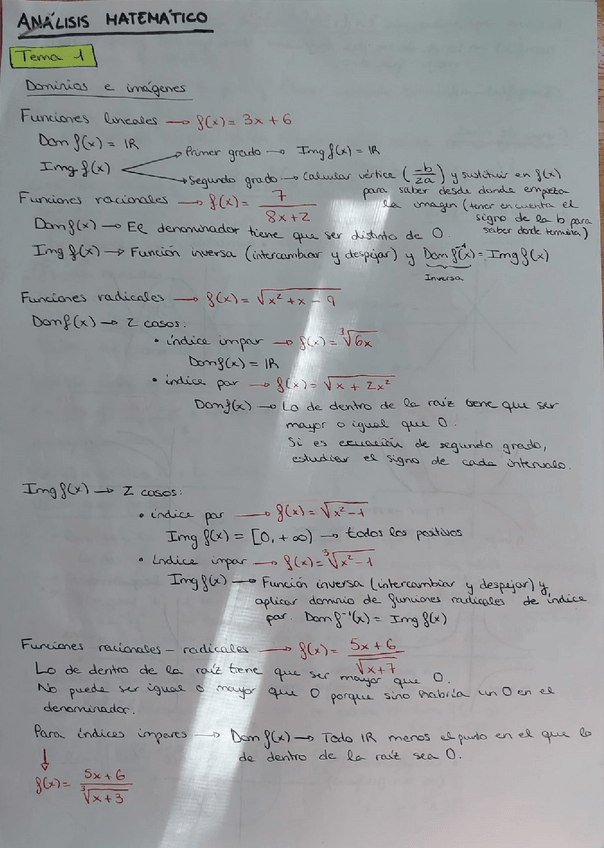 ANÁLISIS MATEMÁTICO
Tema 1
Dominios e imágenes
Funciones lineales → f(x) = 3x + 6
Dom f(x) = IR
Img f(x)
Primer grado → Img f(x) = IR
Segundo grado → Calcular vértice (-b/2a) y sustituir en f(x)
para saber desde donde empieza
la imagen (tener en cuenta el
signo de la b para
saber donde termina)
Funciones racionales → f(x) = 7/(8x+2)
Dom f(x) → El denominador tiene que ser distinto de 0.
Img f(x) → Función inversa (intercambiar y despejar) y Dom f⁻¹(x) = Img f(x)
Inversa
Funciones radicales → f(x) = √(x² + x - 9)
Dom f(x) → 2 casos:
• índice impar → f(x) = ³√(6x)
Dom f(x) = IR
• índice par → f(x) = √(x + 2x²)
Dom f(x) → Lo de dentro de la raíz tiene que ser
mayor o igual que 0.
Si es ecuación de segundo grado,
estudiar el signo de cada intervalo.
Img f(x) → 2 casos:
• índice par → f(x) = √(x² - 1)
Img f(x) = [0, +∞) → todos los positivos
• Índice impar → f(x) = ³√(x² - 1)
Img f(x) → Función inversa (intercambiar y despejar) y
aplicar dominio de funciones radicales de índice
par. Dom f⁻¹(x) = Img f(x)
Funciones racionales - radicales → f(x) = (5x + 6)/√(x+7)
Lo de dentro de la raíz tiene que ser mayor que 0.
No puede ser igual o mayor que 0 porque sino habría un 0 en el
denominador.
Para índices impares → Dom f(x) → Todo IR menos el punto en el que lo
de dentro de la raíz sea 0.
f(x) = (5x + 6)/³√(x + 3)